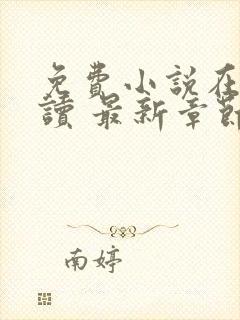 免費小說在
讀 最新章節
南婷